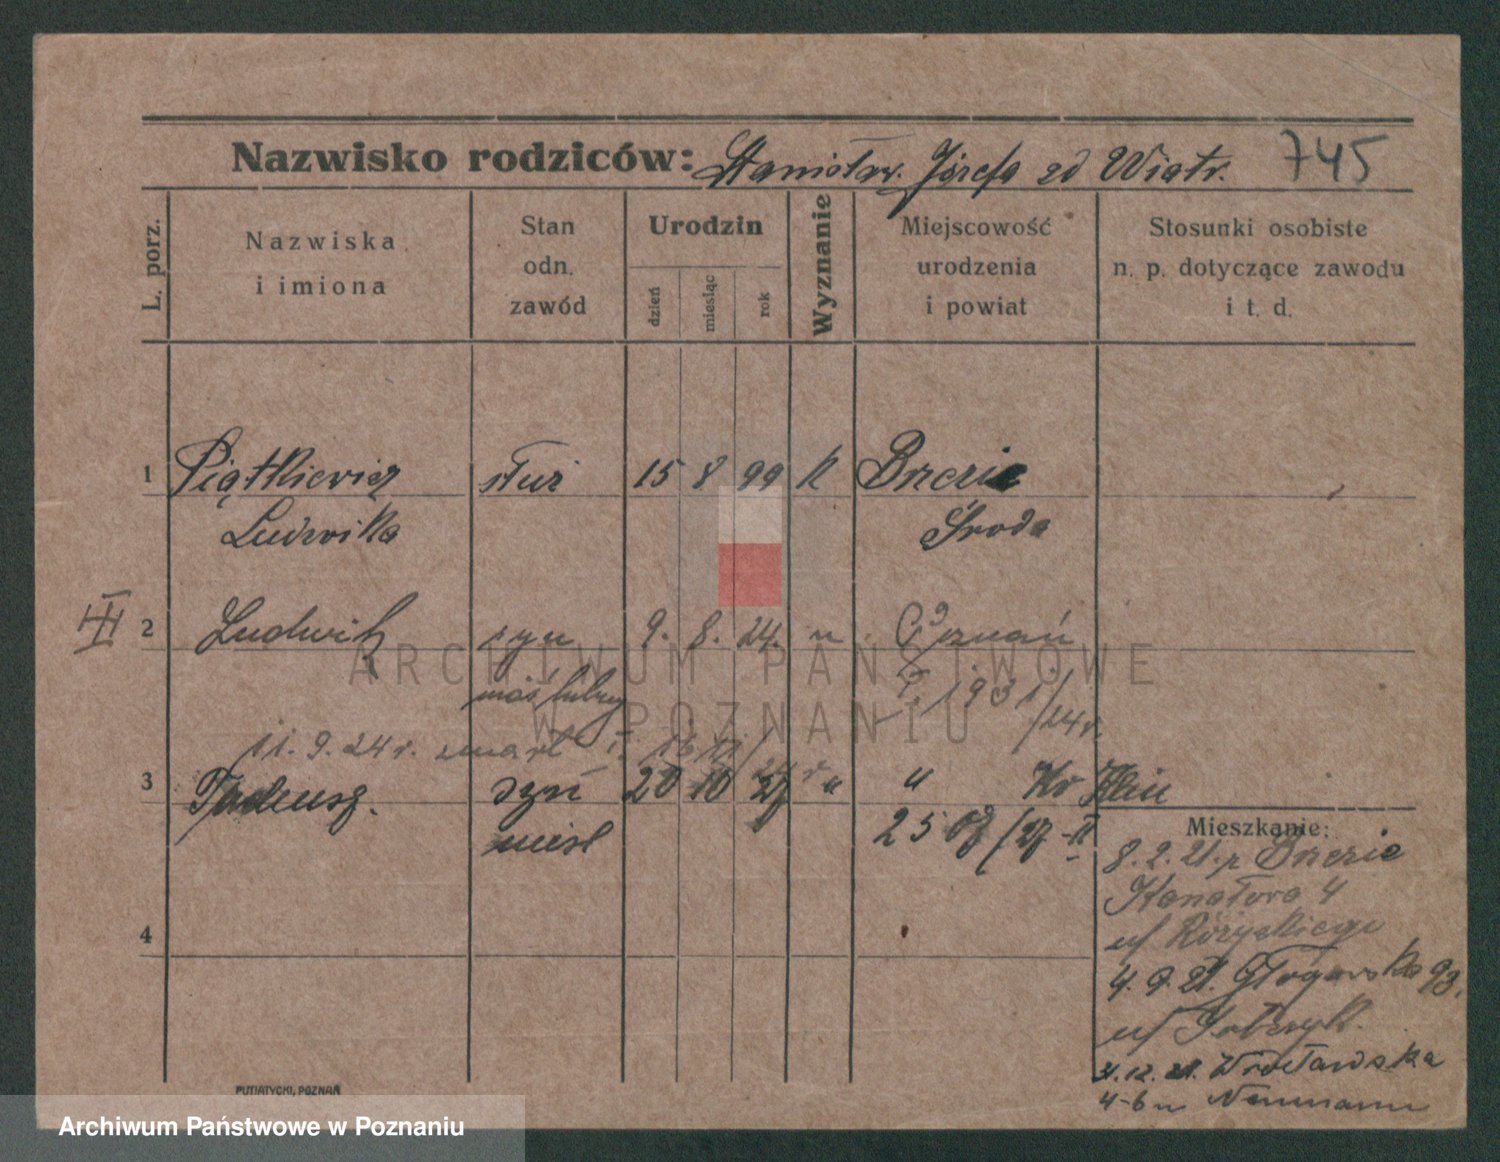 Nazwisko rodziców: Stanisław. Józefa zd Wiatr. 745
L. porz.
Nazwiska i imiona
Stan odn. zawód
Urodzin
dzień miesiąc rok
Wyznanie
Miejscowość urodzenia i powiat
Stosunki osobiste n. p. dotyczące zawodu i t. d.
1 Piątkiewicz służ 15 8 99 k Brzezie
Ludwika Środa
III 2 Ludwik syn 9. 8. 24. Poznań
nieślubny
11. 9. 24 r. zmarł
3 Tadeusz. syn 20 10 27 "
nieśl 25
Mieszkanie:
8. 2. 21. z Brzezie
Kanałowa 4
u/ Różyckiego
4. 9. 21. Głogowska 93.
u/
31. 12. 21. Wrocławska
4-6 u Neumann
4
PUTIATYCKI, POZNAŃ
ARCHIWUM PAŃSTWOWE
W POZNANIU
Archiwum Państwowe w Poznaniu